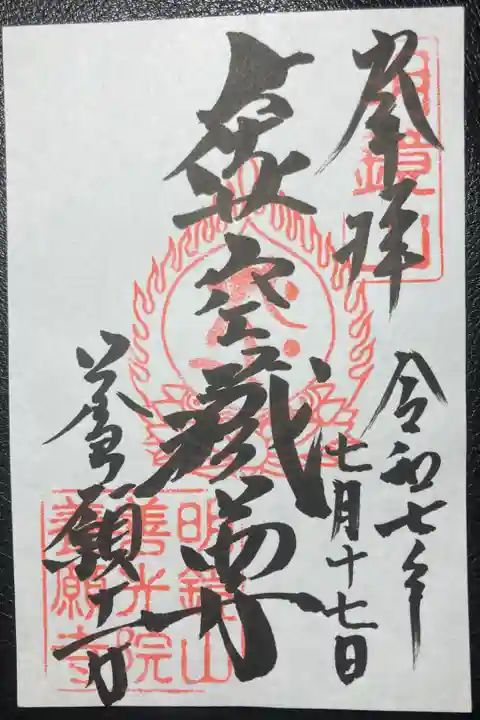 奉拝
令和七年
七月十七日
虚空蔵尊
養願寺
明鏡山
明鏡山
善光院
養願寺